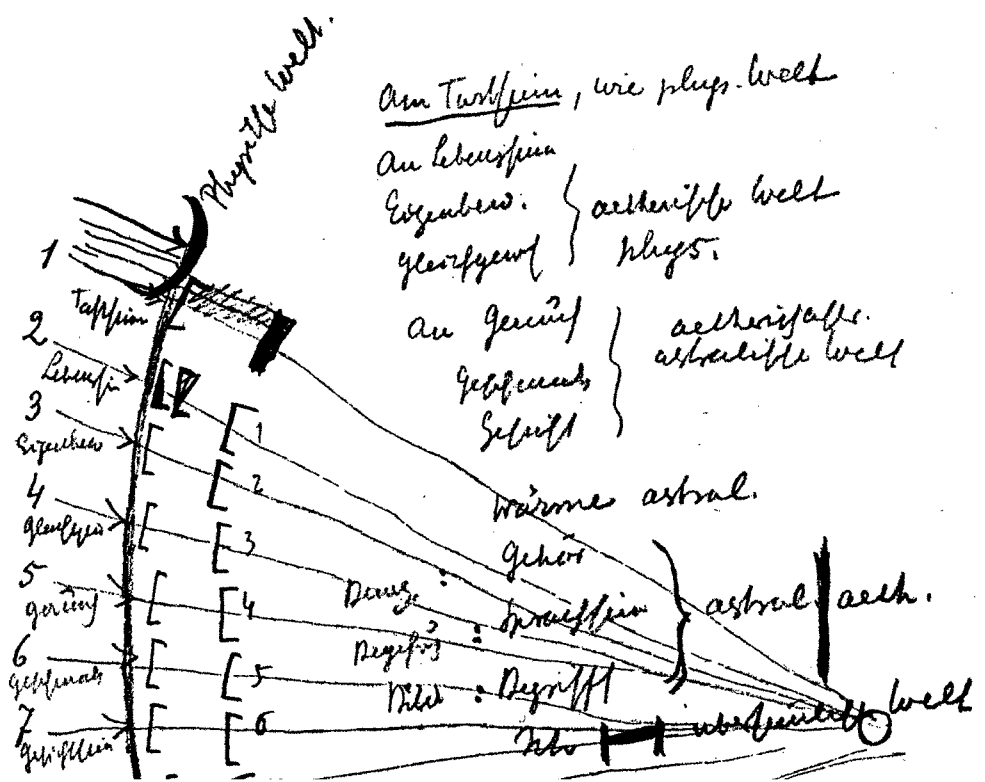 Physische Welt.
Am Tastsinn, wie phys. Welt
An Lebenssinn
Eigenbew.
Gleichgew
aetherische Welt
phys.
An Geruch
Geschmack
Gesicht
astralische Welt
Wärme astral.
Gehör
Sprachsinn
Begriff
astral. aeth.
übersinnlich. Welt
1
Tastsinn
2
Lebenssin
3
Eigenbew
4
Gleichgew
5
Geruch
6
Geschmack
7
Gesichtssinn
1
2
3
4
5
6
Beweg. :
Begehr :
Bild :
Ich